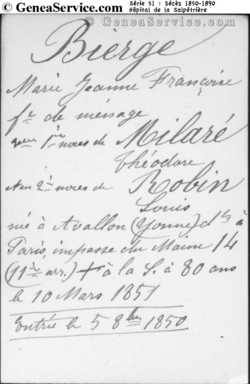 © GeneaService.com
Série 51 : Décès 1850-1890
Hôpital de la Salpétrière
Bierge
Marie Jeanne Françoise
fe de ménage
veuve 1res noces de Milaré
Théodore
et en 2es noces de Robin
Louis
né à Avallon (Yonne) dt à
Paris impasse du Maine 14
(11e arr.) + à la S. à 80 ans
le 10 Mars 1851
Entrée le 5 8bre 1850
© GeneaService.com